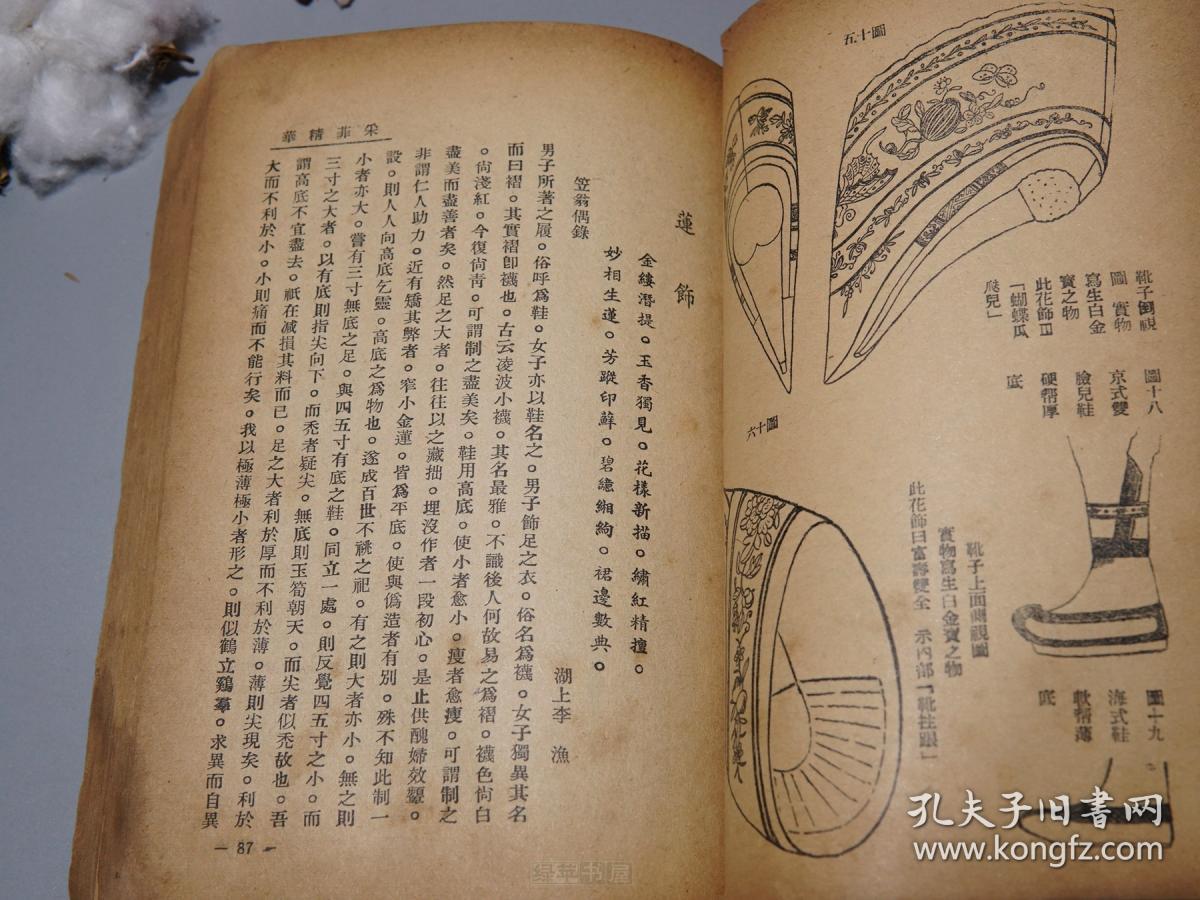 圖十五
靴子側視
圖 實物
寫生白金
寶之物
此花飾曰
「蝴蝶瓜
瓞兒」
圖十八
京式雙
臉兒鞋
硬幫厚
底
圖十六
靴子上面側視圖
實物寫生白金寶之物
此花飾曰富壽雙全 示內部「靴拄跟」
圖十九
海式鞋
軟幫薄
底
采菲精華
蓮飾
金縷潛提。玉香獨見。花樣新描。繡紅精擅。
妙相生蓮。芳蹤印蘚。碧繶緗絇。裙邊數典。
笠翁偶錄
湖上李漁
男子所著之履。俗呼爲鞋。女子亦以鞋名之。男子飾足之衣。俗名爲襪。女子獨異其名
而曰褶。其實褶卽襪也。古云凌波小襪。其名最雅。不識後人何故易之爲褶。襪色尙白
。尙淺紅。今復尙靑。可謂制之盡美矣。鞋用高底。使小者愈小。瘦者愈瘦。可謂制之
盡美而盡善者矣。然足之大者。往往以之藏拙。埋沒作者一段初心。是止供醜婦效顰。
非謂仁人助力。近有矯其弊者。窄小金蓮。皆爲平底。使與僞造者有別。殊不知此制一
設。則人人向高底乞靈。高底之爲物也。遂成百世不祧之祀。有之則大者亦小。無之則
小者亦大。嘗有三寸無底之足。與四五寸有底之鞋。同立一處。則反覺四五寸之小。而
三寸之大者。以有底則指尖向下。而禿者疑尖。無底則玉筍朝天。而尖者似禿故也。吾
謂高底不宜盡去。祇在减損其料而已。足之大者利於厚而不利於薄。薄則尖現矣。利於
大而不利於小。小則痛而不能行矣。我以極薄極小者形之。則似鶴立鷄羣。求異而自異
— 87 —
绿苹书屋
孔夫子旧书网
www.kongfz.com